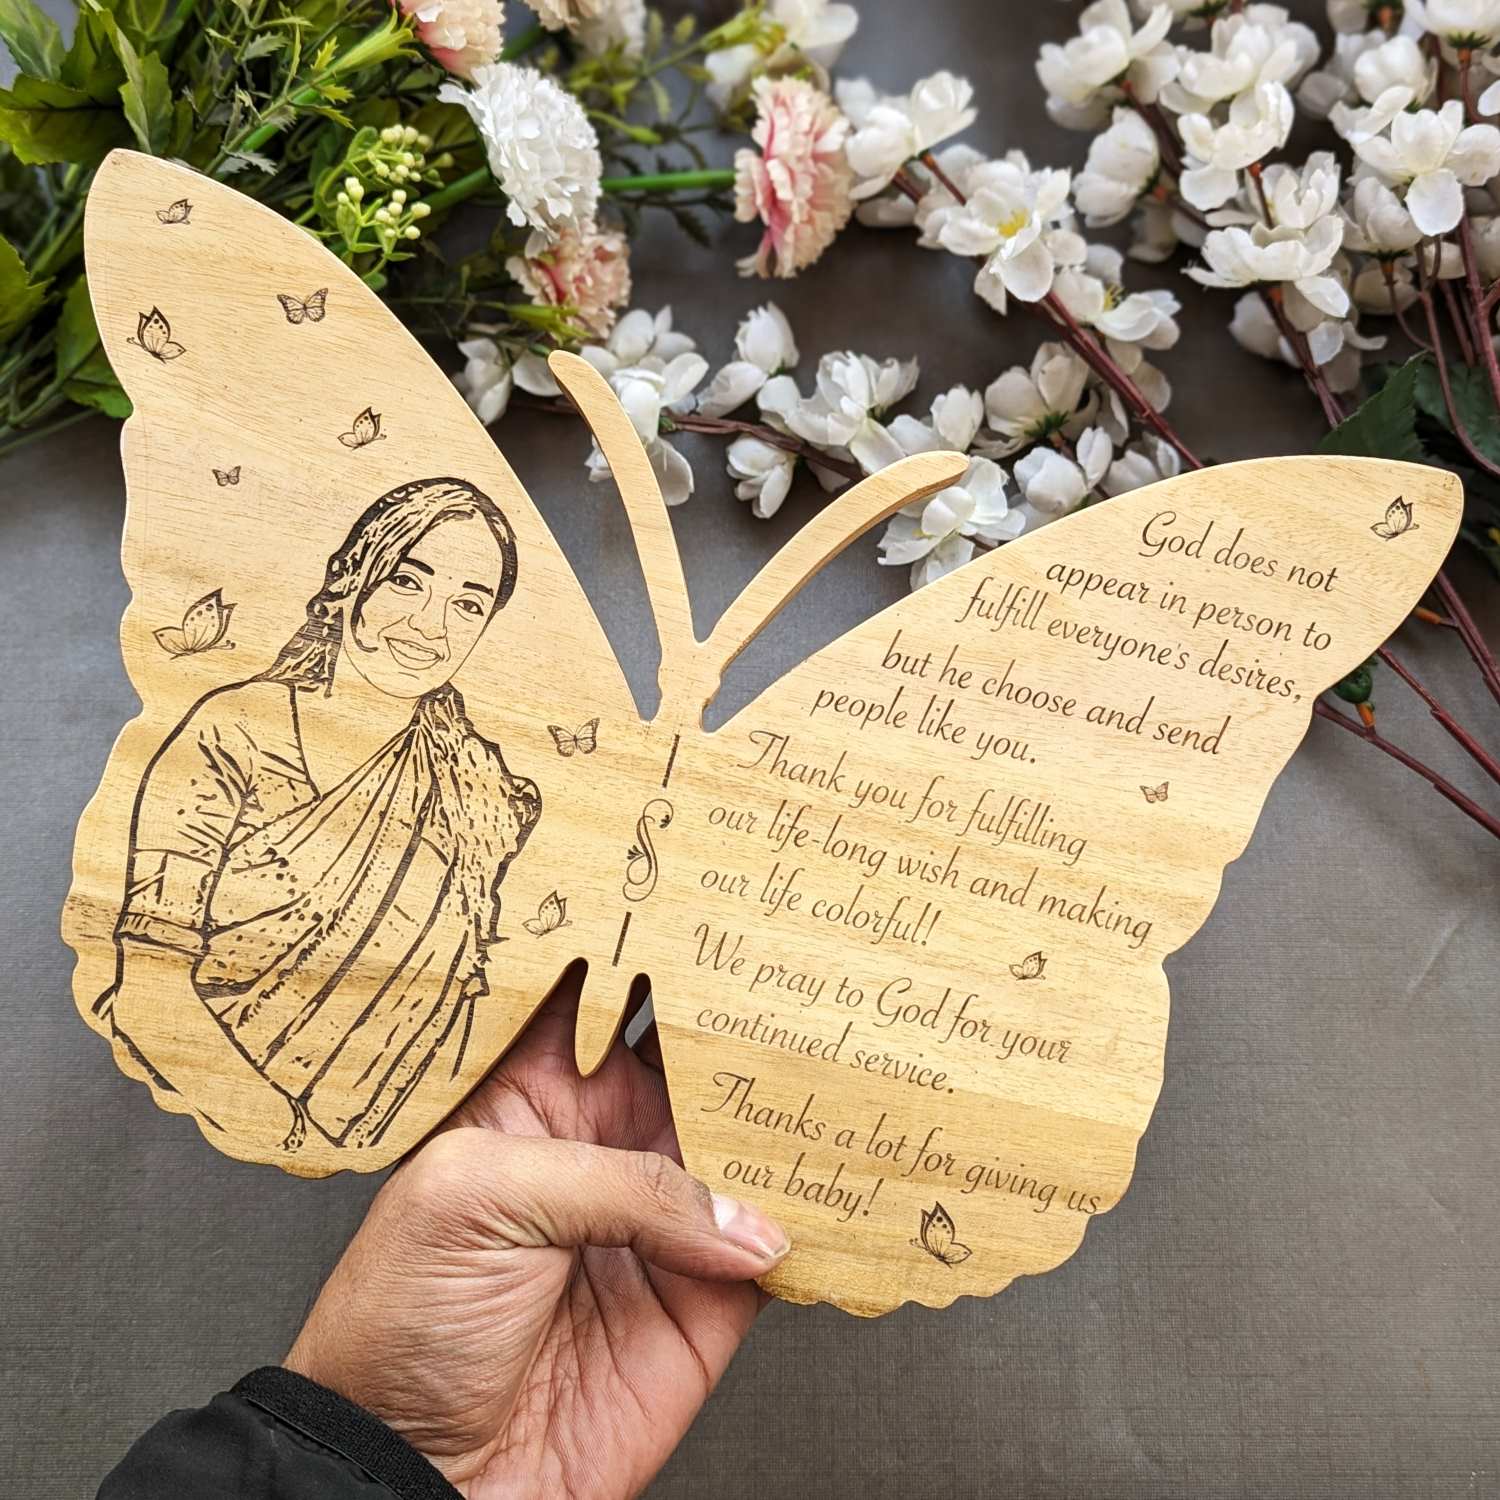 God does not
appear in person to
fulfill everyone's desires,
but he choose and send
people like you.
Thank you for fulfilling
our life-long wish and making
our life colorful!
We pray to God for your
continued service.
Thanks a lot for giving us
our baby!